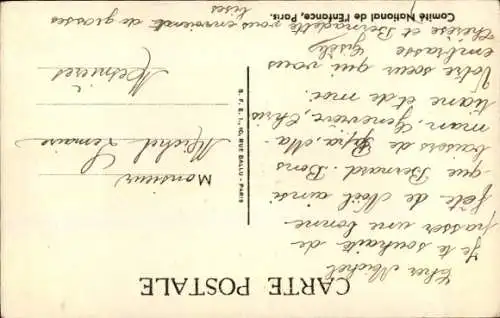 CARTE POSTALE
Cher Michel
Je te souhaite de
passer une bonne
fête de Noël ainsi
que Bernard. Bons
baisers de Papa, Ma
man, Geneviève, Chris
tiane et de moi.
Votre sœur qui vous
embrasse Gisèle
Thérèse et Bernadette vous envoient de grosses
bises
Comité National de l'Enfance, Paris.
S. F. E. I., 10, RUE BALLU - PARIS
Monsieur
Michel Lemaire
Mesnières